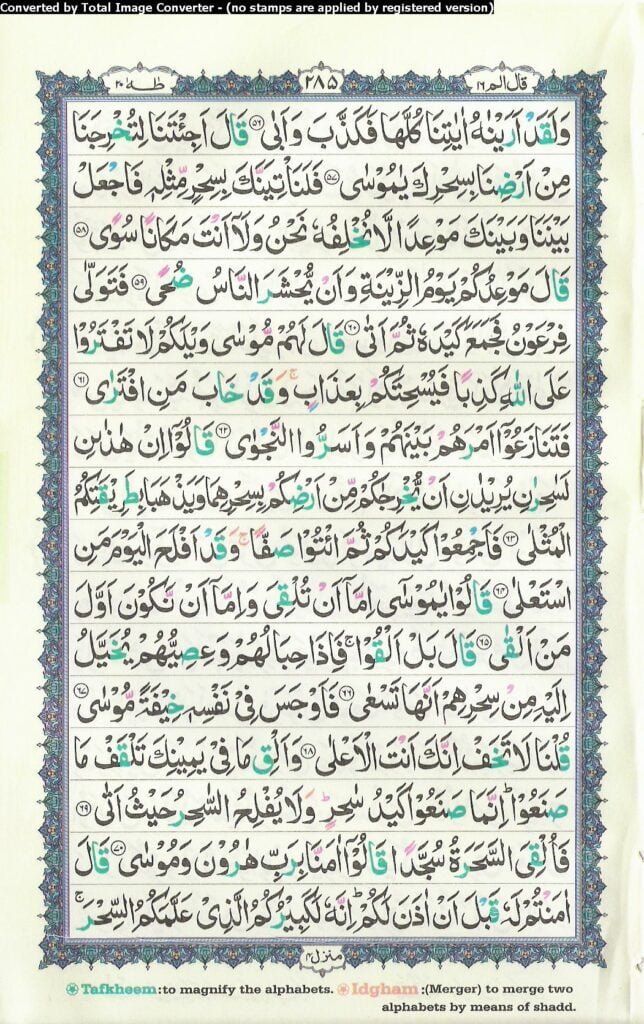 Converted by Total Image Converter - (no stamps are applied by registered version)
قال الم ١٦ ٢٨٥ طٰهٰ ٢٠
وَلَقَدْ اَرَيْنٰهُ اٰيٰتِنَا كُلَّهَا فَكَذَّبَ وَاَبٰى ﴿٥٦﴾ قَالَ اَجِئْتَنَا لِتُخْرِجَنَا
مِنْ اَرْضِنَا بِسِحْرِكَ يٰمُوْسٰى ﴿٥٧﴾ فَلَنَاْتِيَنَّكَ بِسِحْرٍ مِّثْلِهٖ فَاجْعَلْ
بَيْنَنَا وَبَيْنَكَ مَوْعِدًا لَّا نُخْلِفُهٗ نَحْنُ وَلَآ اَنْتَ مَكَانًا سُوًى ﴿٥٨﴾
قَالَ مَوْعِدُكُمْ يَوْمُ الزِّيْنَةِ وَاَنْ يُّحْشَرَ النَّاسُ ضُحًى ﴿٥٩﴾ فَتَوَلّٰى
فِرْعَوْنُ فَجَمَعَ كَيْدَهٗ ثُمَّ اَتٰى ﴿٦٠﴾ قَالَ لَهُمْ مُّوْسٰى وَيْلَكُمْ لَا تَفْتَرُوْا
عَلَى اللّٰهِ كَذِبًا فَيُسْحِتَكُمْ بِعَذَابٍ ۚ وَقَدْ خَابَ مَنِ افْتَرٰى ﴿٦١﴾
فَتَنَازَعُوْٓا اَمْرَهُمْ بَيْنَهُمْ وَاَسَرُّوا النَّجْوٰى ﴿٦٢﴾ قَالُوْٓا اِنْ هٰذٰىنِ
لَسٰحِرٰنِ يُرِيْدٰنِ اَنْ يُّخْرِجٰكُمْ مِّنْ اَرْضِكُمْ بِسِحْرِهِمَا وَيَذْهَبَا بِطَرِيْقَتِكُمُ
الْمُثْلٰى ﴿٦٣﴾ فَاَجْمِعُوْا كَيْدَكُمْ ثُمَّ ائْتُوْا صَفًّا ۚ وَقَدْ اَفْلَحَ الْيَوْمَ مَنِ
اسْتَعْلٰى ﴿٦٤﴾ قَالُوْا يٰمُوْسٰٓى اِمَّآ اَنْ تُلْقِيَ وَاِمَّآ اَنْ نَّكُوْنَ اَوَّلَ
مَنْ اَلْقٰى ﴿٦٥﴾ قَالَ بَلْ اَلْقُوْا ۚ فَاِذَا حِبَالُهُمْ وَعِصِيُّهُمْ يُخَيَّلُ
اِلَيْهِ مِنْ سِحْرِهِمْ اَنَّهَا تَسْعٰى ﴿٦٦﴾ فَاَوْجَسَ فِيْ نَفْسِهٖ خِيْفَةً مُّوْسٰى ﴿٦٧﴾
قُلْنَا لَا تَخَفْ اِنَّكَ اَنْتَ الْاَعْلٰى ﴿٦٨﴾ وَاَلْقِ مَا فِيْ يَمِيْنِكَ تَلْقَفْ مَا
صَنَعُوْا ۗ اِنَّمَا صَنَعُوْا كَيْدُ سٰحِرٍ ۗ وَلَا يُفْلِحُ السّٰحِرُ حَيْثُ اَتٰى ﴿٦٩﴾
فَاُلْقِيَ السَّحَرَةُ سُجَّدًا قَالُوْٓا اٰمَنَّا بِرَبِّ هٰرُوْنَ وَمُوْسٰى ﴿٧٠﴾ قَالَ
اٰمَنْتُمْ لَهٗ قَبْلَ اَنْ اٰذَنَ لَكُمْ ۗ اِنَّهٗ لَكَبِيْرُكُمُ الَّذِيْ عَلَّمَكُمُ السِّحْرَ ۚ
منزل ٤
Tafkheem :to magnify the alphabets. Idgham :(Merger) to merge two
alphabets by means of shadd.